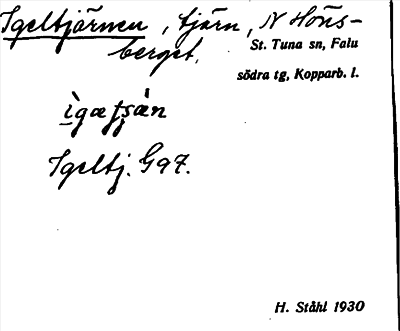 Igeltjärnen, tjärn, N Höns-
berget.
St. Tuna sn, Falu
södra tg, Kopparb. l.
Igeltj. Ga7.
H. Ståhl 1930